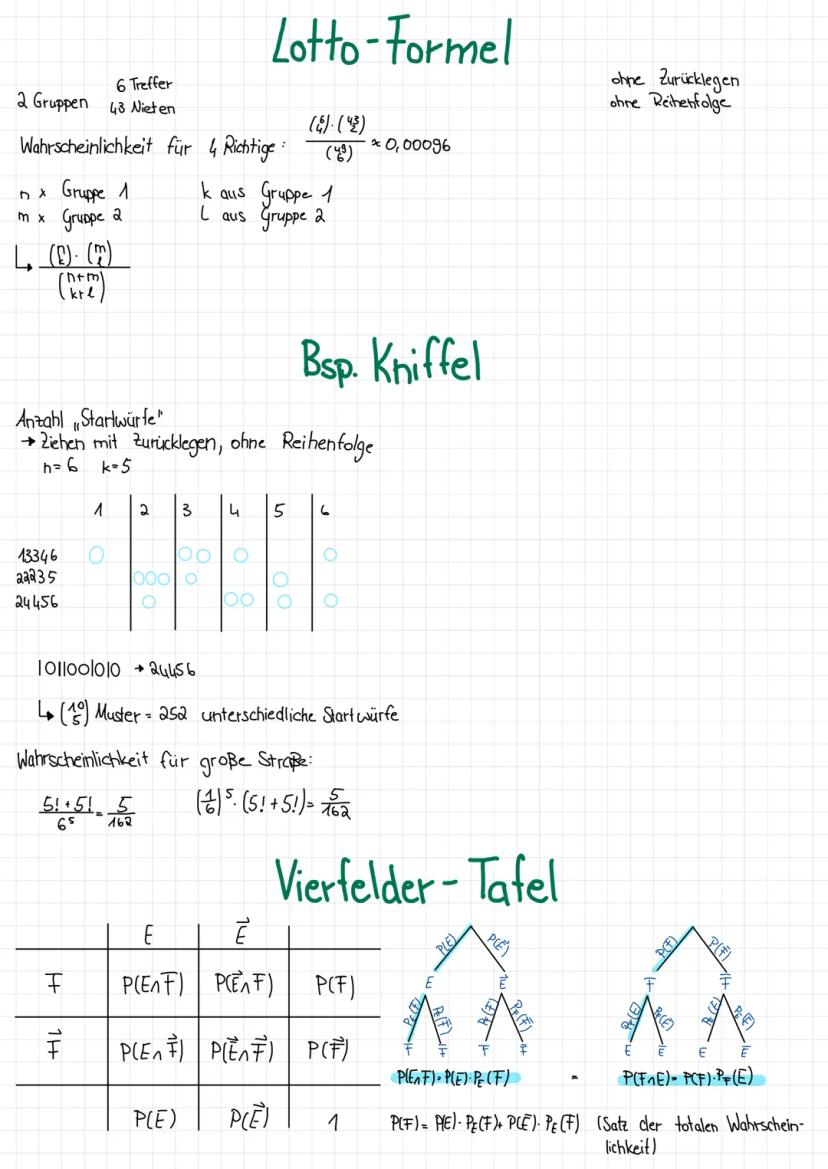 Lotto-Formel
ohne Zurücklegen
ohne Reihenfolge
2 Gruppen 6 Treffer
43 Nieten
Wahrscheinlichkeit für 4 Richtige: (6 4)·(43 2) / (49 6) ≈ 0,00096
n x Gruppe 1 k aus Gruppe 1
m x Gruppe 2 l aus Gruppe 2
↳ (n k)·(m l) / (n+m k+l)
Bsp. Kniffel
Anzahl „Startwürfe"
→ Ziehen mit Zurücklegen, ohne Reihenfolge
n=6 k=5
1 2 3 4 5 6
13346
22235
24456
1011001010 → 24456
↳ (10 5) Muster = 252 unterschiedliche Startwürfe
Wahrscheinlichkeit für große Straße:
5!+5! / 6⁵ = 5/162 (1/6)⁵·(5!+5!) = 5/162
Vierfelder-Tafel
E E̅
F P(E∩F) P(E̅∩F) P(F)
F̅ P(E∩F̅) P(E̅∩F̅) P(F̅)
P(E) P(E̅) 1
P(E) P(E̅) P(F) P(F̅)
E E̅ F F̅
P_E(F) P_E(F̅) P_E̅(F) P_E̅(F̅) P_F(E) P_F(E̅) P_F̅(E) P_F̅(E̅)
F F̅ F F̅ E E̅ E E̅
P(E∩F)=P(E)·P_E(F) = P(F∩E)=P(F)·P_F(E)
P(F)=P(E)·P_E(F)+P(E̅)·P_E̅(F) (Satz der totalen Wahrschein-
lichkeit)